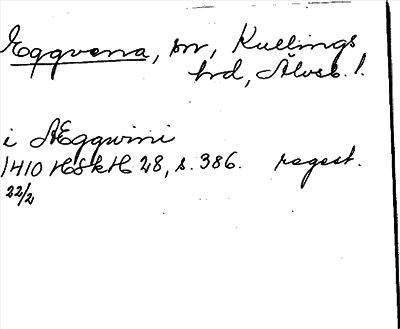 Eggvena, sn, Kullings
hd, Älvsb. l.
i AEggwini
1410 HSkH 28, s. 386. regest.
22/2